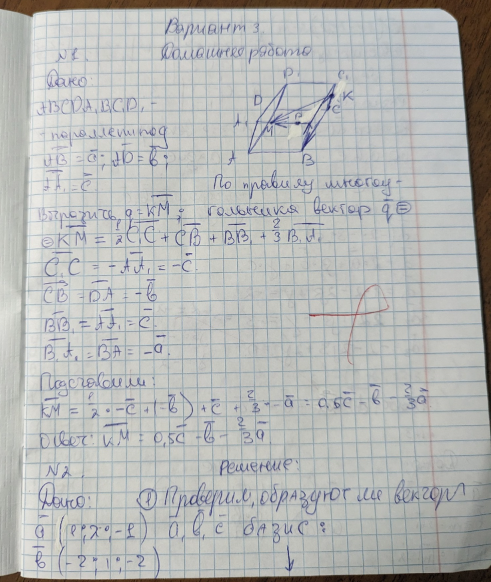 Вариант 3.
Домашнее работа
N1.
Дано:
ABCDA₁B₁C₁D₁ -
- пораллепипод
AB = a; AD = b;
AA₁ = c
D₁ C₁
D K
C
A₁ M
A B
По правилу многоу-
Выразить q = KM; гольника вектор q ⊜
⊜ KM = 1/2 C₁C + CB + BB₁ + 2/3 B₁A₁
C₁C = -AA₁ = -c.
CB = DA = -b
BB₁ = AA₁ = c.
B₁A₁ = BA = -a.
Подставили:
KM = 1/2 · -c + (-b) + c + 2/3 · -a = 0,5c - b - 2/3 a
Ответ: KM = 0,5c - b - 2/3 a
N2. Решение:
Дано: ① Проверим, образуют ли вектор
a (1; 2; -1) a, b, c базис:
b (-2; 1; -2) ↓